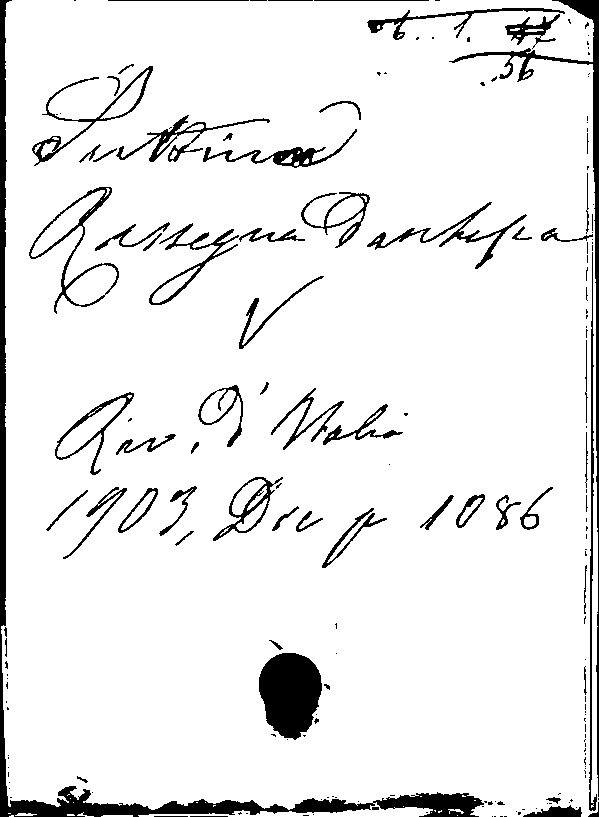 6. 1.
56
Suttina
Rassegna Dantesca
V
Riv. d'Italia
1903, Dic p 1086